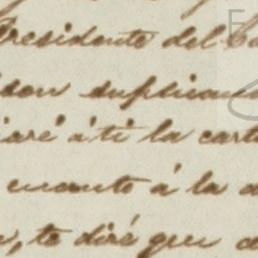 Presidente del
son suplican
á ti la cart
en cuanto á la
te diré que